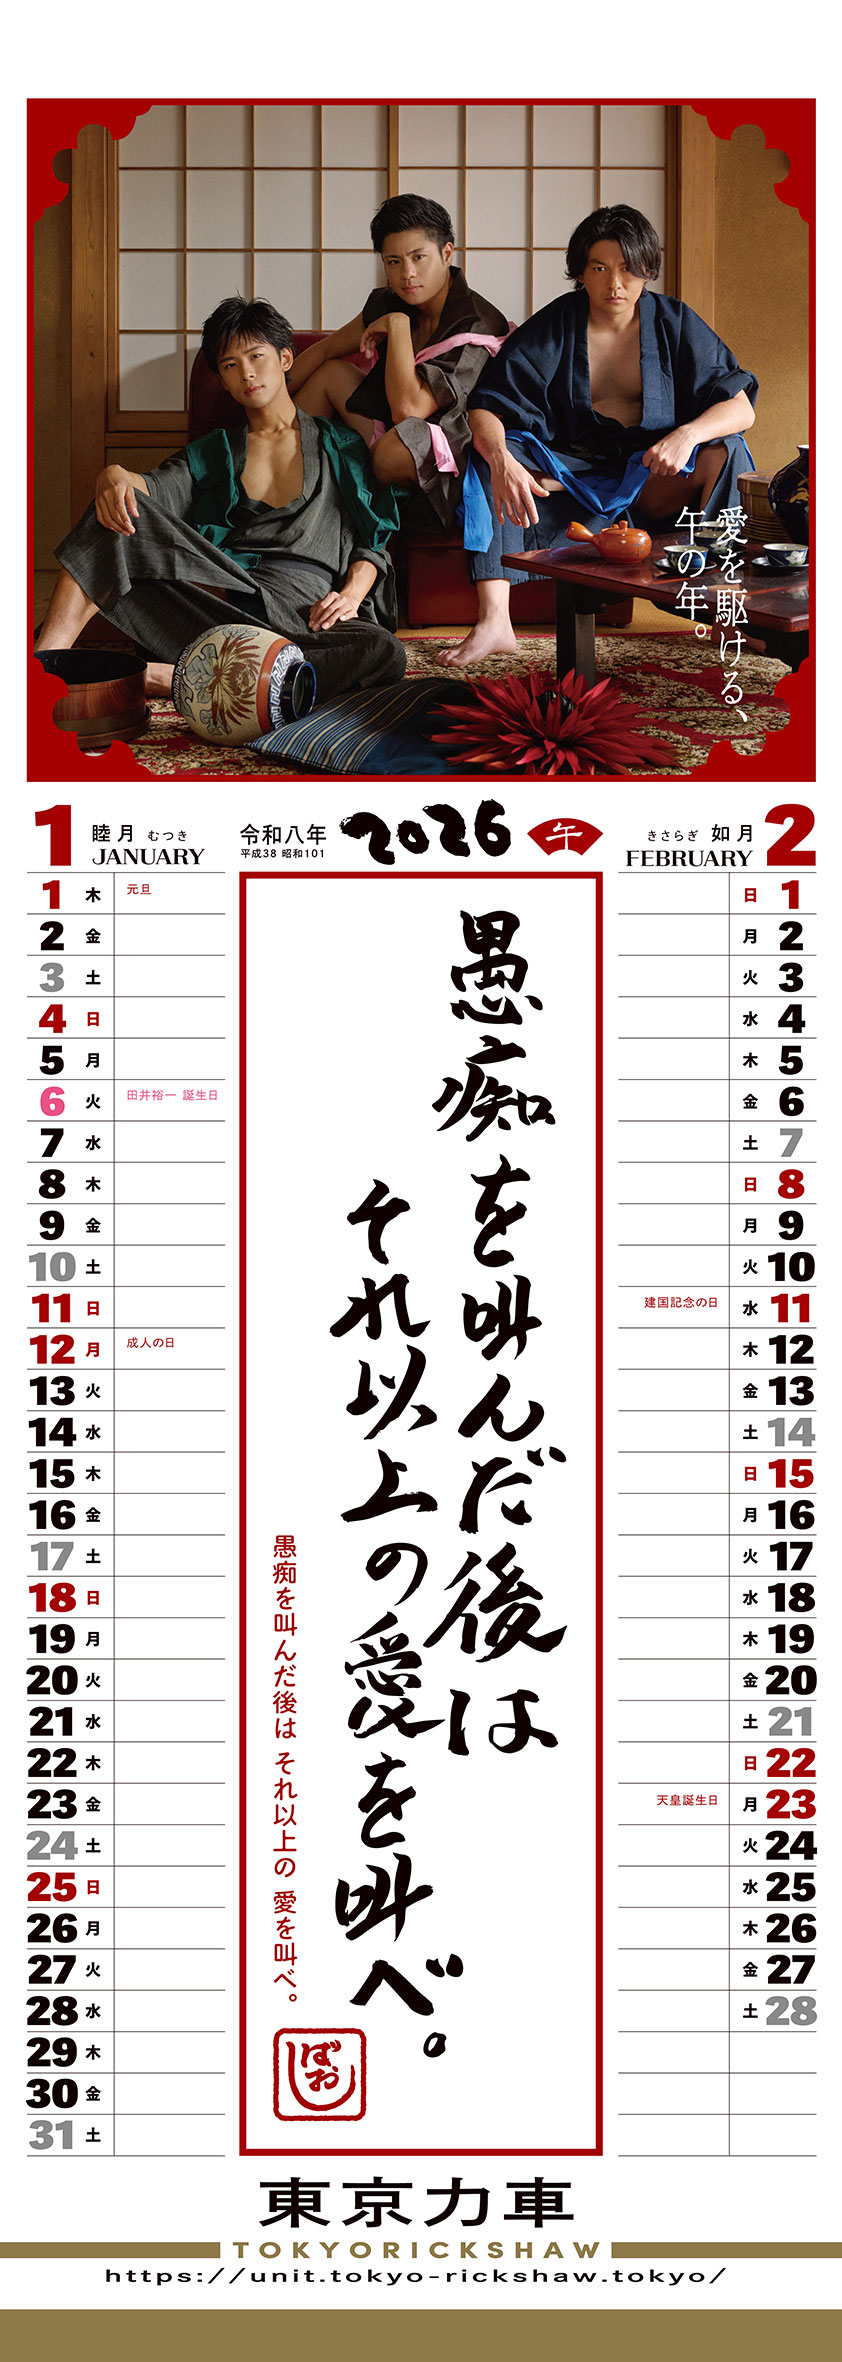 愛を駆ける、
午の年。
1
睦月 むつき
JANUARY
令和八年
平成38 昭和101
2026
午
きさらぎ 如月
FEBRUARY
2
1 木 元旦
2 金
3 土
4 日
5 月
6 火 田井裕一 誕生日
7 水
8 木
9 金
10 土
11 日
12 月 成人の日
13 火
14 水
15 木
16 金
17 土
18 日
19 月
20 火
21 水
22 木
23 金
24 土
25 日
26 月
27 火
28 水
29 木
30 金
31 土
愚痴を叫んだ後は
それ以上の愛を叫べ。
愚痴を叫んだ後は それ以上の 愛を叫べ。
ばおし
日 1
月 2
火 3
水 4
木 5
金 6
土 7
日 8
月 9
火 10
建国記念の日 水 11
木 12
金 13
土 14
日 15
月 16
火 17
水 18
木 19
金 20
土 21
日 22
天皇誕生日 月 23
火 24
水 25
木 26
金 27
土 28
東京力車
TOKYORICKSHAW
https://unit.tokyo-rickshaw.tokyo/